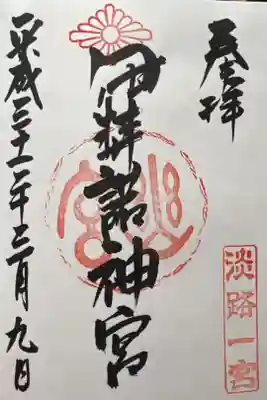 奉拝
伊弉諾神宮
平成三十一年三月九日
淡路一宮